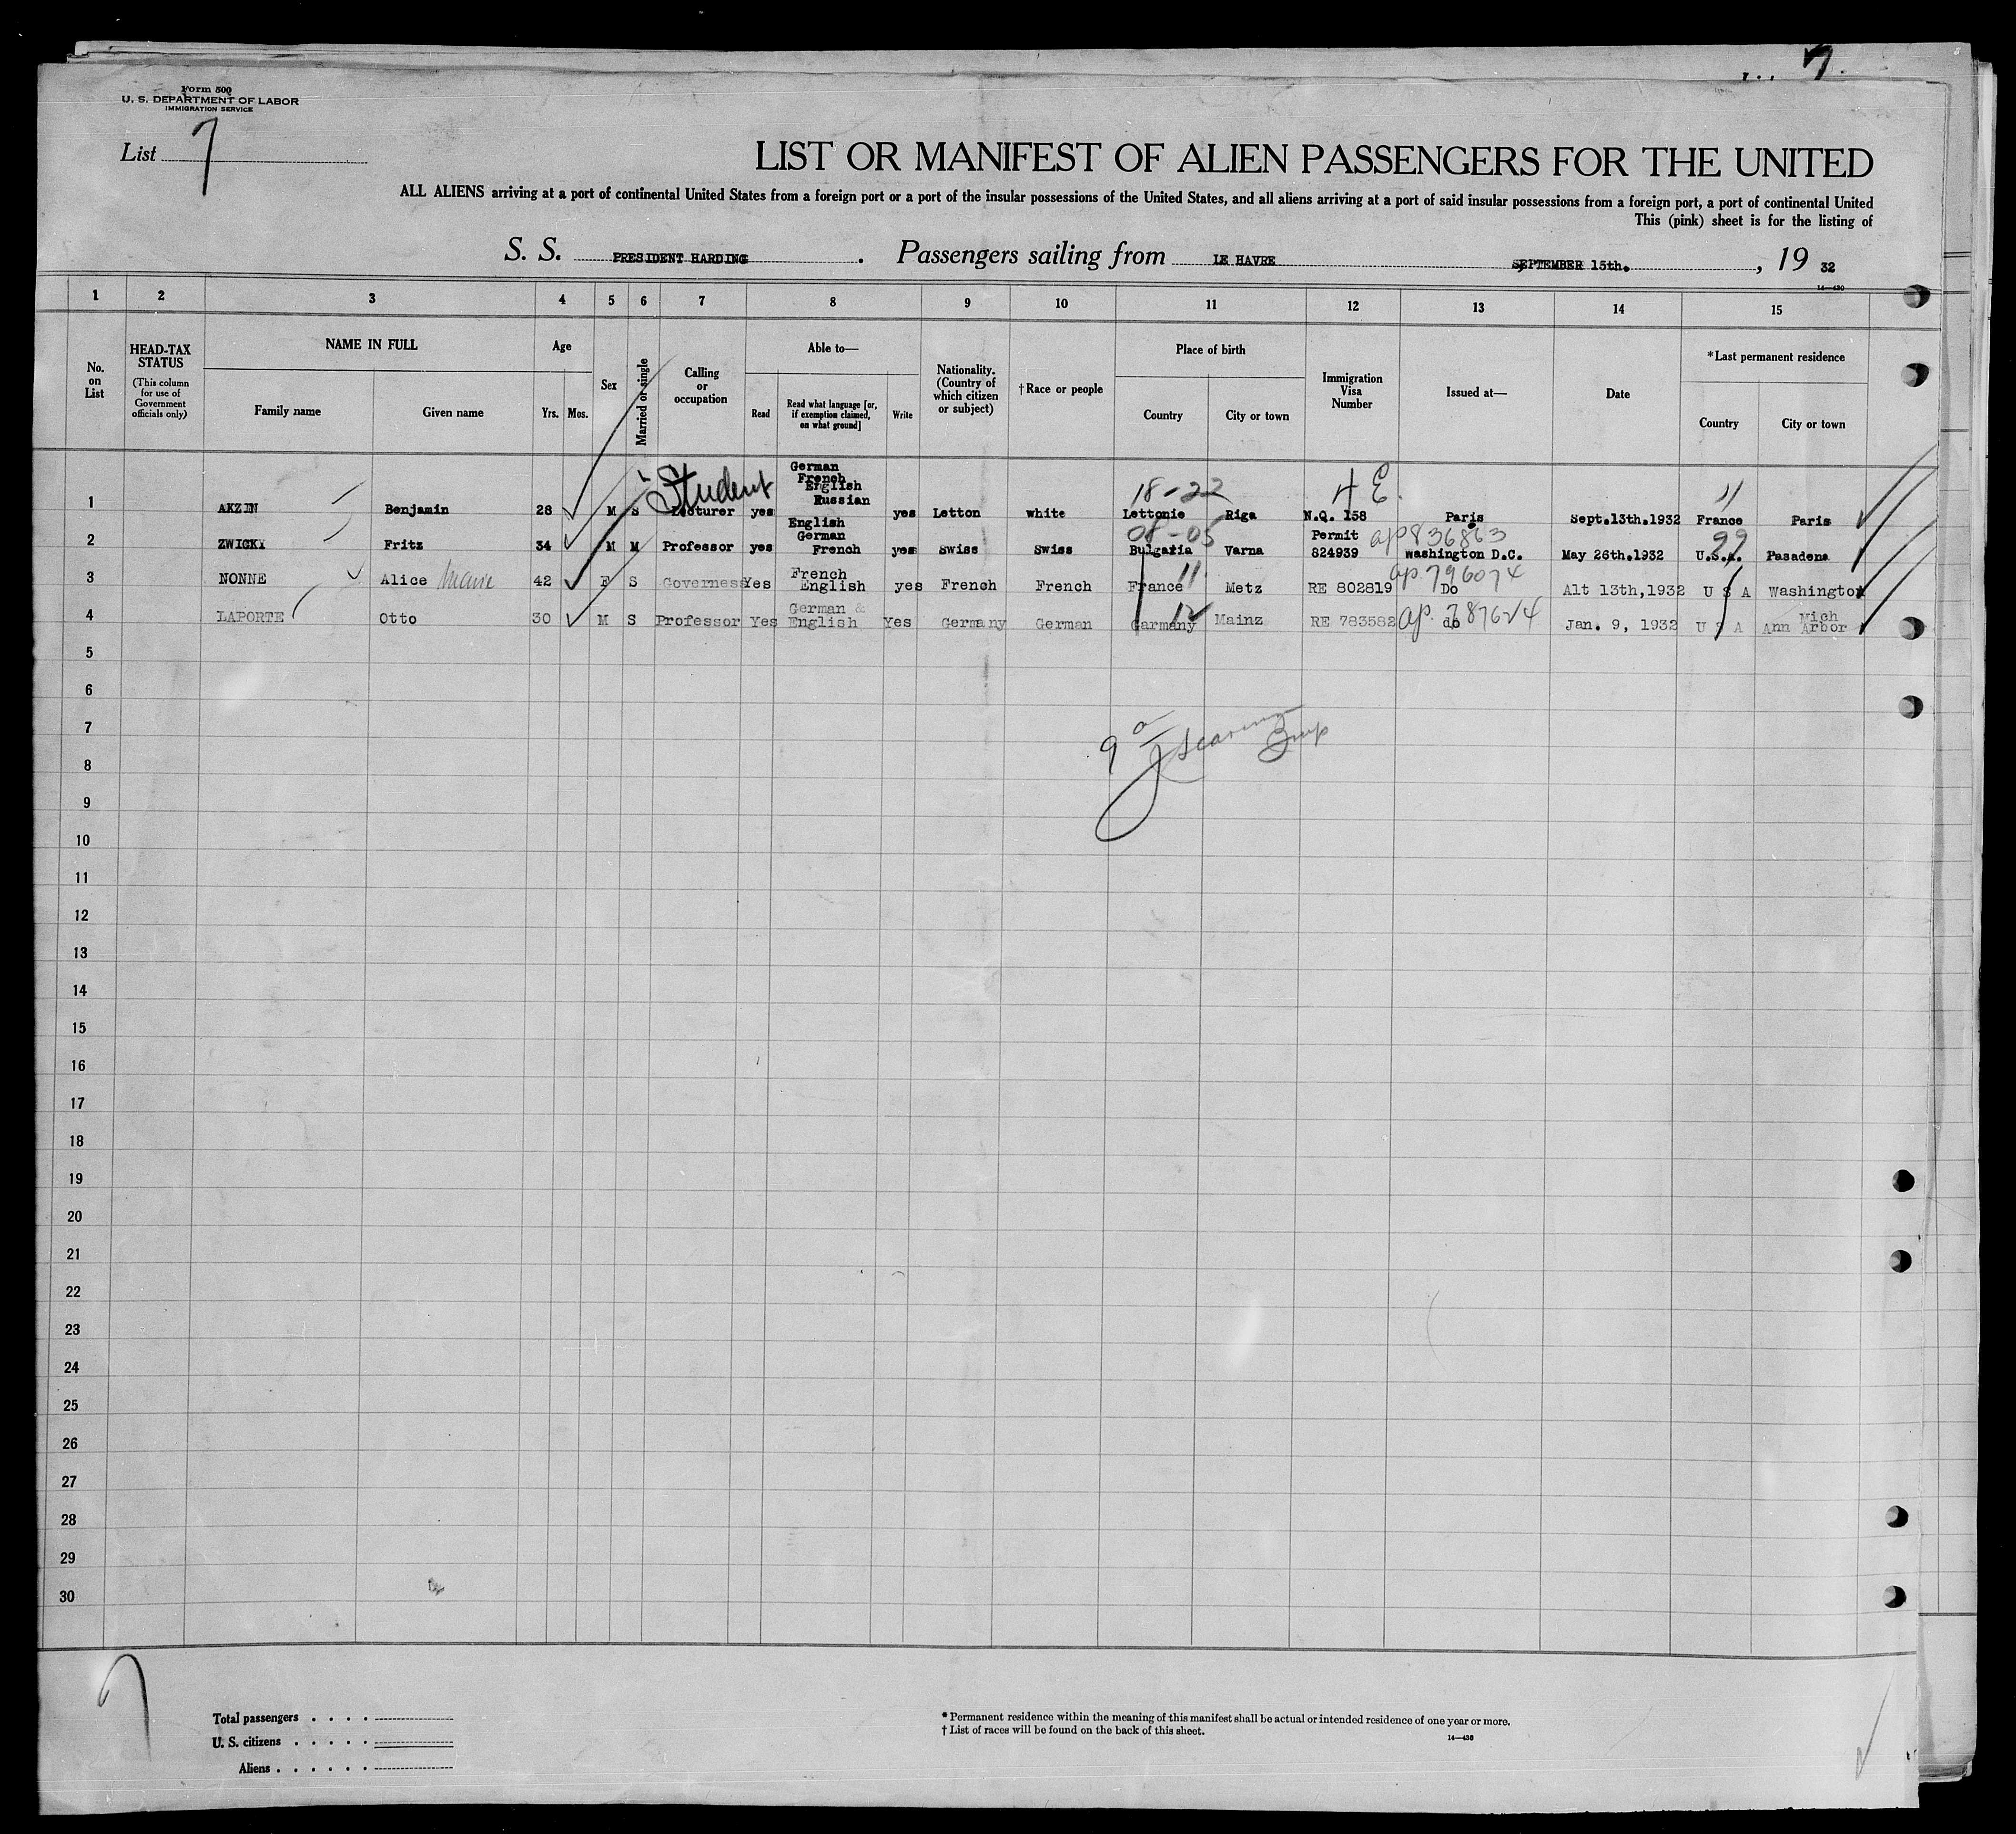 7
Form 500
U. S. DEPARTMENT OF LABOR
IMMIGRATION SERVICE
List 7
LIST OR MANIFEST OF ALIEN PASSENGERS FOR THE UNITED
ALL ALIENS arriving at a port of continental United States from a foreign port or a port of the insular possessions of the United States, and all aliens arriving at a port of said insular possessions from a foreign port, a port of continental United
This (pink) sheet is for the listing of
S. S. PRESIDENT HARDING . Passengers sailing from LE HAVRE SEPTEMBER 15th. , 19 32
14—430
1 2 3 4 5 6 7 8 9 10 11 12 13 14 15
No. on List
HEAD-TAX STATUS
(This column for use of Government officials only)
NAME IN FULL
Family name
Given name
Age
Yrs.
Mos.
Sex
Married or single
Calling or occupation
Able to—
Read
Read what language [or, if exemption claimed, on what ground]
Write
Nationality. (Country of which citizen or subject)
†Race or people
Place of birth
Country
City or town
Immigration Visa Number
Issued at—
Date
*Last permanent residence
Country
City or town
German
French
English
Russian
Student 18-22 4 E. 11
1 AKZIN Benjamin 28 M S Lecturer yes yes Letton white Lettonie Riga N.Q. 158 Paris Sept.13th.1932 France Paris
English
German
08-05 Permit ap 836863 99
2 ZWICKY Fritz 34 M M Professor yes French yes Swiss Swiss Bulgaria Varna 824939 Washington D.C. May 26th.1932 U.S.A. Pasadena
French 11 ap 796074
3 NONNE Alice Marie 42 F S Governess Yes English yes French French France Metz RE 802819 Do Alt 13th,1932 U S A Washington
German & 12 ap. 787624 Mich
4 LAPORTE Otto 30 M S Professor Yes English Yes Germany German Garmany Mainz RE 783582 do Jan. 9, 1932 U S A Ann Arbor
5
6
7
9 a
8
9
10
11
12
13
14
15
16
17
18
19
20
21
22
23
24
25
26
27
28
29
30
7
Total passengers . . . .
U. S. citizens . . . . .
Aliens . . . . . .
* Permanent residence within the meaning of this manifest shall be actual or intended residence of one year or more.
† List of races will be found on the back of this sheet.
14—430